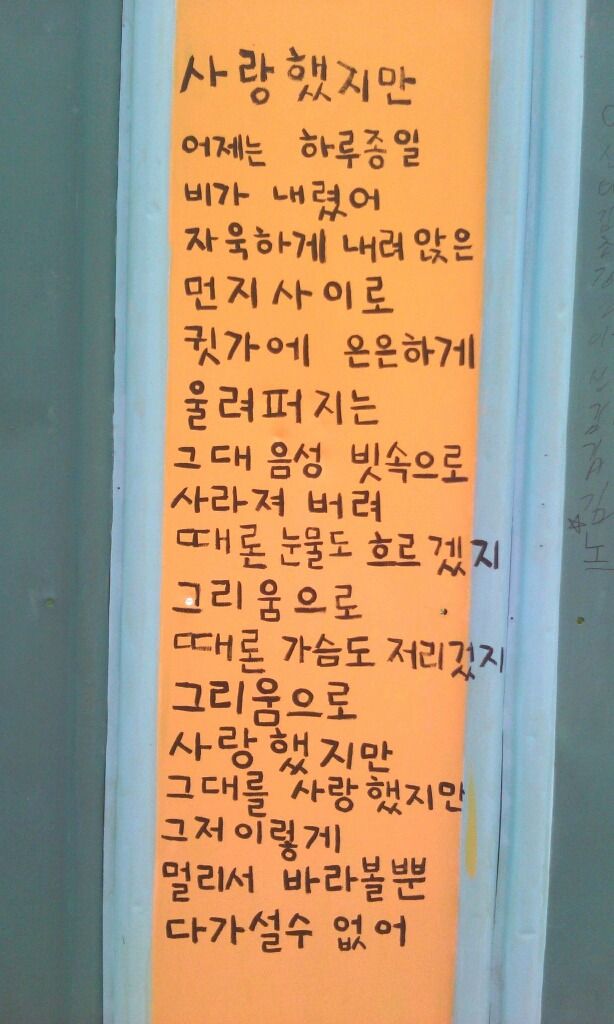 사랑했지만
어제는 하루종일
비가 내렸어
자욱하게 내려 앉은
먼지사이로
큇가에 은은하게
울려퍼지는
그대 음성 빗속으로
사라져 버려
때론 눈물도 흐르겠지
그리움으로
때론 가슴도 저리겄지
그리움으로
사랑했지만
그대를 사랑했지만
그저이렇게
멀리서 바라볼뿐
다가설수 없어